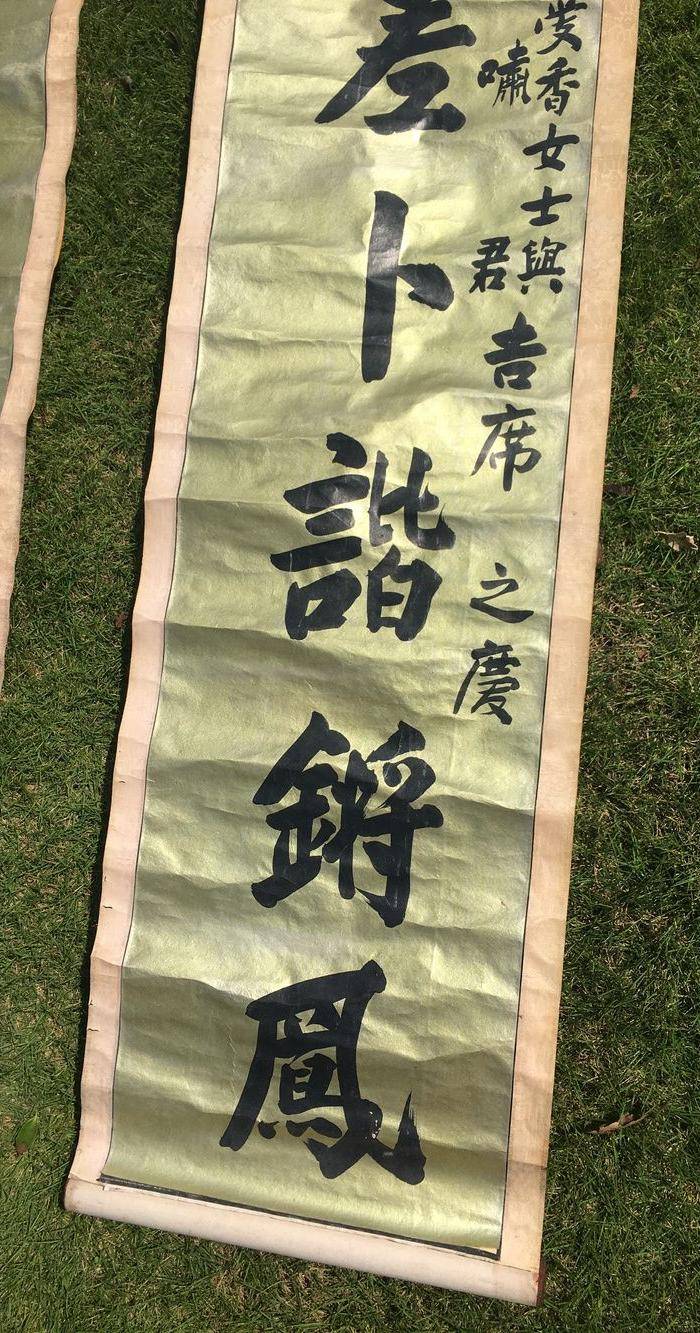 香女士與
嘯君
吉席之慶
卜諧鏘鳳